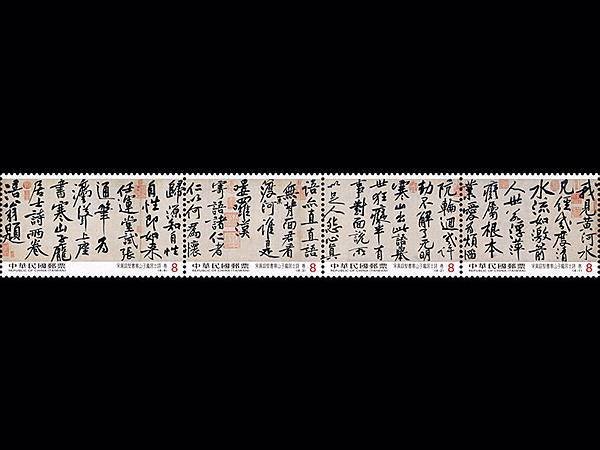 我見黃河水
凡經幾度清
水流如激箭
人世若浮萍
癡屬根本
業愛為煩惱
輪迴幾許
劫不解了无明
寒山出此語舉
世狂癡半有
事對面說所
以足人怨心真
語亦直直語
無背面君看
渡河誰是
嘍羅漢
寄語諸仁者
仁以何為懷
歸源知自性
自性即如來
任運堂試張
通筆為
上座
書寒山子龐
居士詩兩卷
涪翁題
中華民國郵票 宋黃庭堅書寒山子龐居士詩 卷 8
REPUBLIC OF CHINA (TAIWAN)
中華民國郵票 宋黃庭堅書寒山子龐居士詩 卷 8
REPUBLIC OF CHINA (TAIWAN)
中華民國郵票 宋黃庭堅書寒山子龐居士詩 卷 8
REPUBLIC OF CHINA (TAIWAN)
中華民國郵票 宋黃庭堅書寒山子龐居士詩 卷 8
REPUBLIC OF CHINA (TAIWAN)